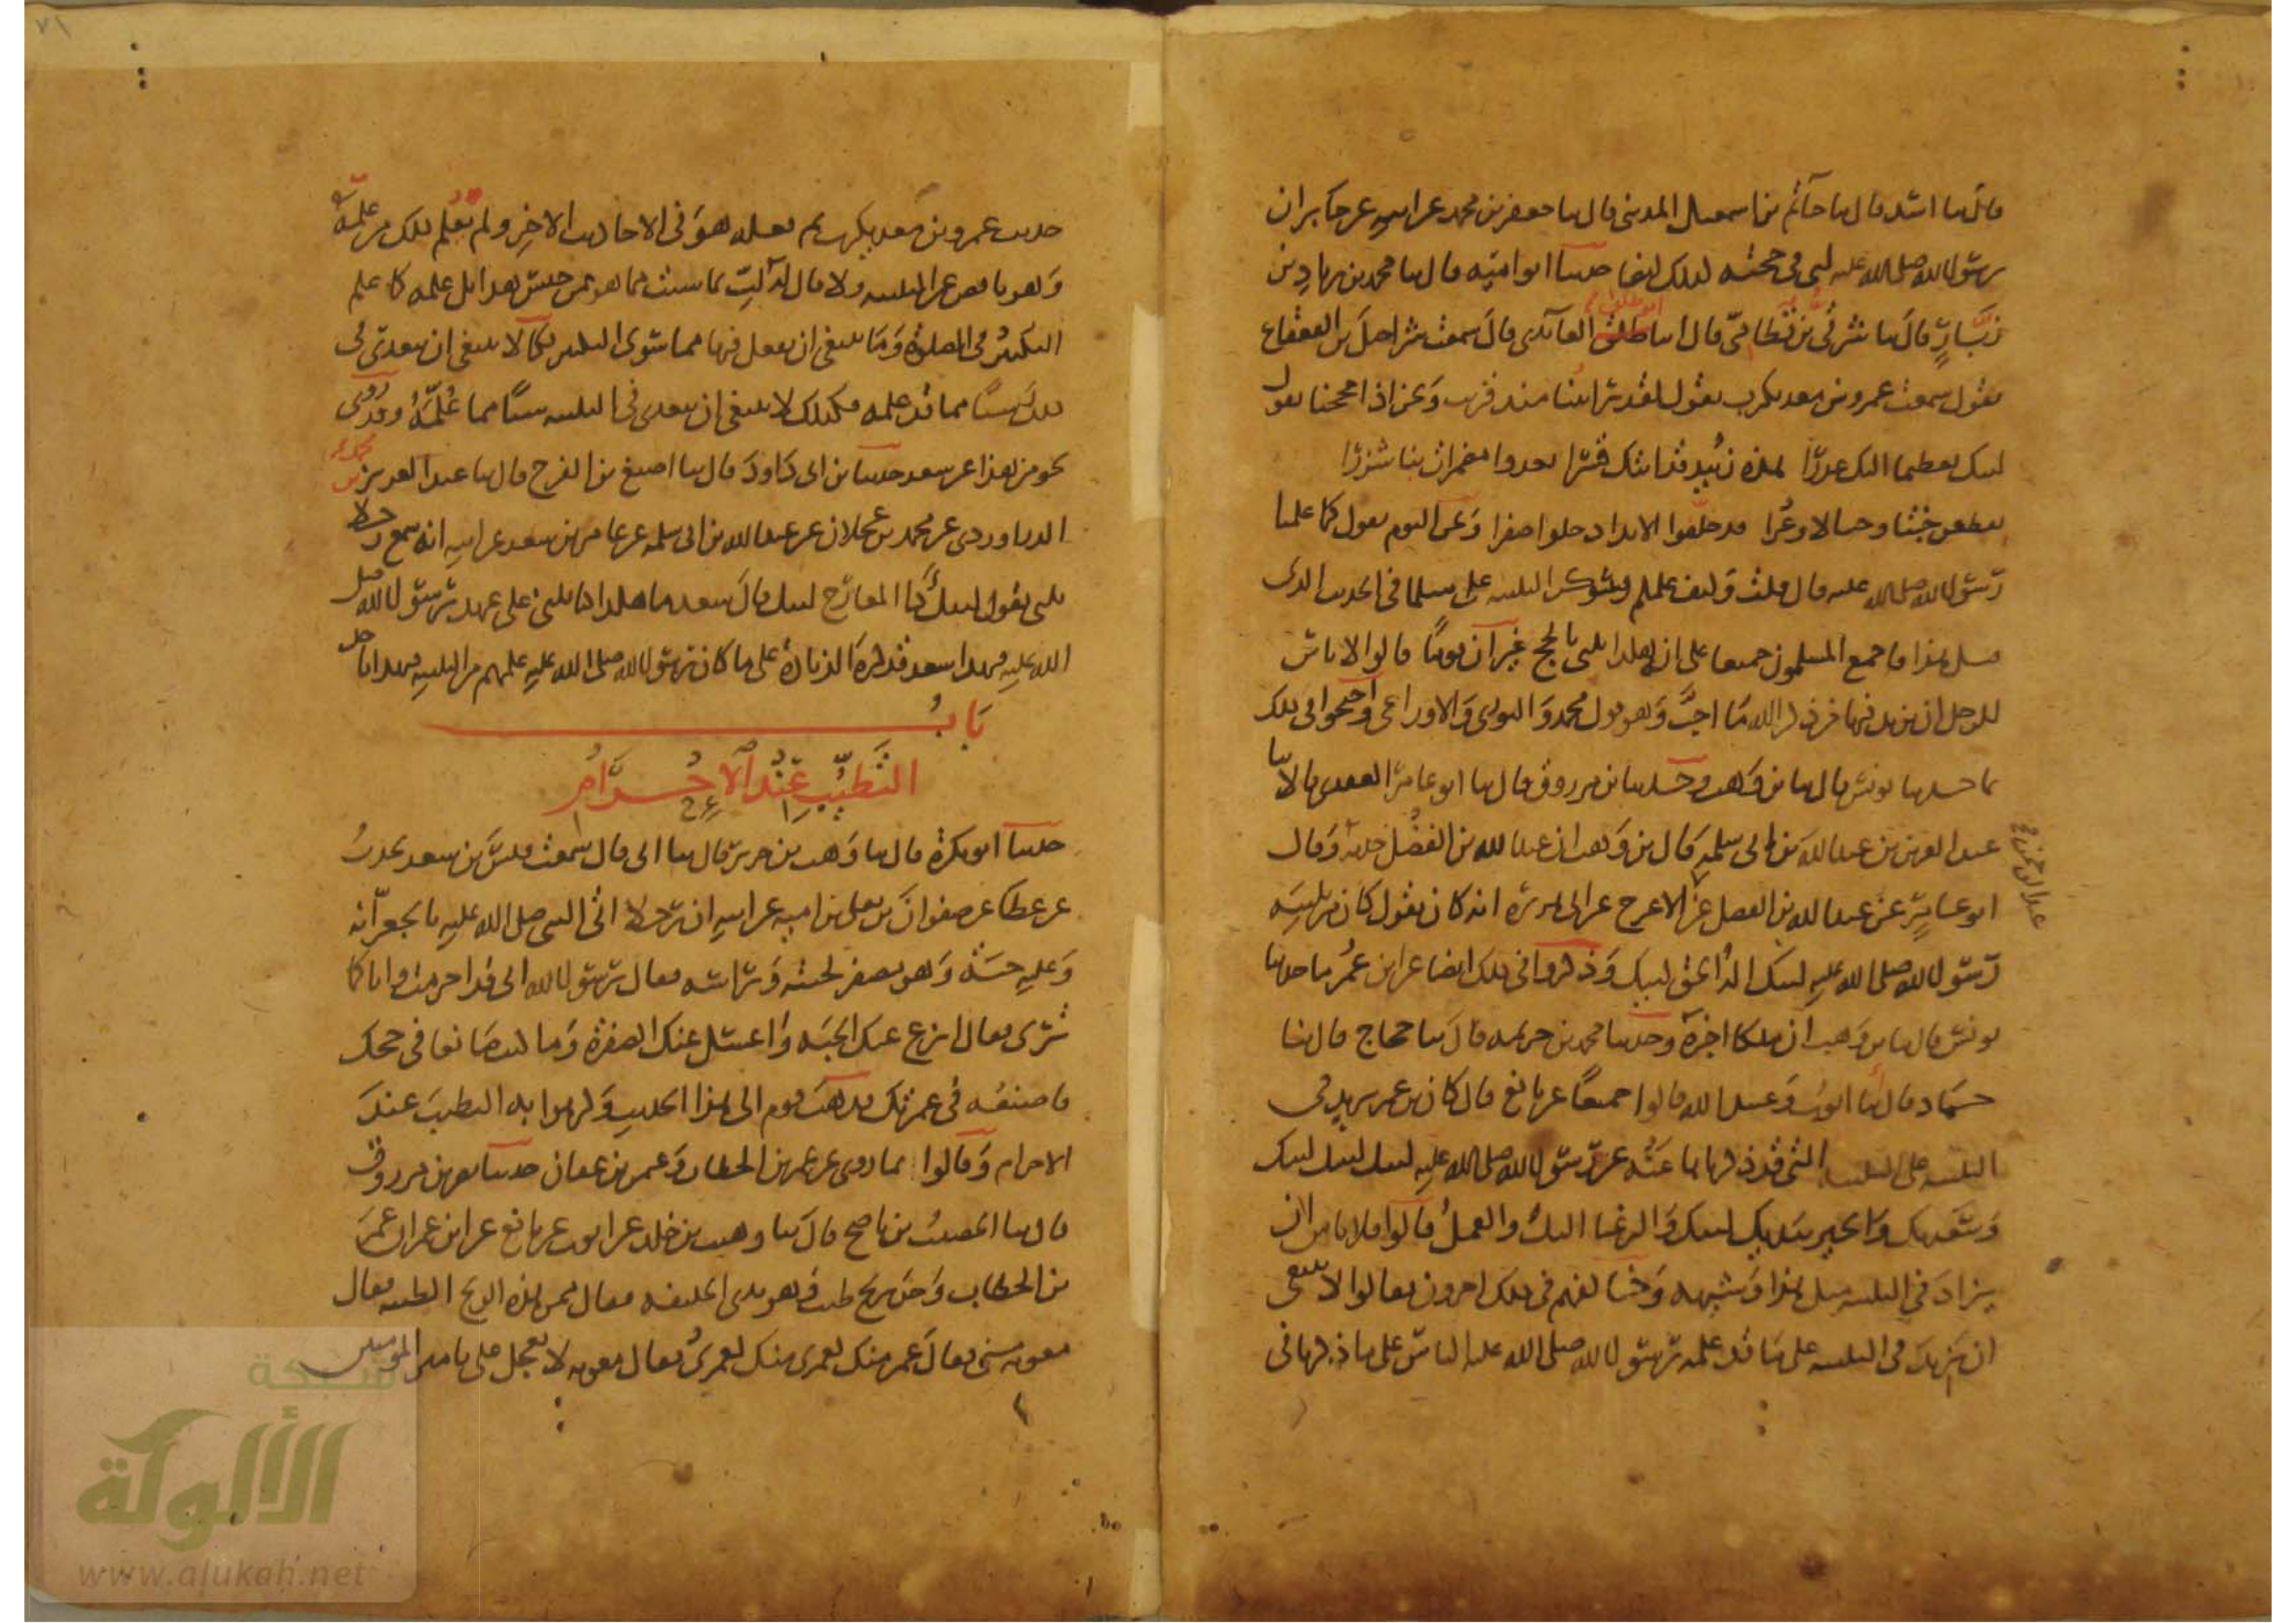 قال ثنا اسد قال ثنا حاتم بن اسمعيل المدنى قال ثنا جعفر بن محمد عن ابيه عن جابر ان
رسول الله صلى الله عليه لبى فى حجته كذلك ايضا حدثنا ابو اميه قال ثنا محمد بن زياد بن
زبار قال ثنا شرقى بن قطامى قال انا ابو طلق العائذى قال سمعت شراحيل بن القعقاع
يقول سمعت عمرو بن معد يكرب يقول لقد رايتنا منذ قريب ونحن اذا حججنا نقول
لبيك تعظيما اليك عذرا هذه زبيد قد اتتك قسرا تعدوا بها مضمرات شزرا
يقطعن خبتا وجبالا وعرا قد خلفوا الانداد خلوا صفرا ونحن اليوم نقول كما علمنا
رسول الله صلى الله عليه قال قلت وكيف علمكم فذكر التلبيه على مثل ما فى الحديث الذى
قبل هذا فاجمع المسلمون جميعا على ان هكذا يلبى بالحج غير ان قوما قالوا لا باس
للرجل ان يزيد فيها من ذكر الله ما احب وهو قول محمد والثورى والاوزاعى واحتجوا فى ذلك
بما حدثنا يونس قال ثنا بن وهب وحدثنا بن مرزوق قال ثنا ابو عامر العقدى قالا ثنا
عبد العزيز بن عبد الله بن ابى سلمه قال بن وهب ان عبد الله بن الفضل حدثه وقال
ابو عامر عن عبد الله بن الفضل عن الاعرج عن ابى هريرة انه كان يقول كان من تلبيه
رسول الله صلى الله عليه لبيك اله الحق لبيك وذكروا فى ذلك ايضا عن ابن عمر ما حدثنا
يونس قال ثنا بن وهب ان ملكا اخبره وحدثنا محمد بن خزيمه قال ثنا حجاج قال ثنا
حماد قال ثنا ايوب وعبيد الله قالوا جميعا عن نافع قال كان بن عمر يزيد فى
التلبيه على التلبيه التى قد ذكرناها عنه عن رسول الله صلى الله عليه لبيك لبيك لبيك
وسعديك والخير بيديك لبيك والرغبا اليك والعمل قالوا فلا باس ان
يزاد فى التلبيه مثل هذا وشبهه وخالفهم فى ذلك اخرون فقالوا لا ينبغى
ان يزيد فى التلبيه على ما قد علمه رسول الله صلى الله عليه الناس على ما ذكرنا فى
حديث عمرو بن معد يكرب ثم فعله هو فى الاحاديث الاخر ولم يعلم ذلك من علمه
وهو ناقص عن التلبيه ولا قال له لب بما شئت مما هو من جنس هذا بل علمه كما علم
التكبير فى الصلوة وما ينبغى ان يفعل فيها مما سوى التكبير فكما لا ينبغى ان يتعدى فى
ذلك شيئا مما قد علمه فكذلك لا ينبغى ان يتعدى فى التلبيه شيئا مما علمه وقد روى
نحو من هذا عن سعد حدثنا بن ابى داود قال ثنا اصبغ بن الفرج قال ثنا عبد العزيز بن محمد
الدراوردى عن محمد بن عجلان عن عبد الله بن ابى سلمه عن عامر بن سعد عن ابيه انه سمع رجلا
يلبى يقول لبيك ذا المعارج لبيك قال سعد ما هكذا كنا نلبى على عهد رسول الله صلى
الله عليه فهذا سعد قد كره الزيادة على ما كان رسول الله صلى الله عليه علمهم من التلبيه فبهذا ناخذ
باب
التطيب عند الاحرام
حدثنا ابو بكرة قال ثنا وهب بن جرير قال ثنا ابى قال سمعت قيس بن سعد يحدث
عن عطا عن صفوان بن يعلى بن اميه عن ابيه ان رجلا اتى النبى صلى الله عليه بالجعرانه
وعليه جبة وهو مصفر لحيته وراسه فقال يرسول الله انى قد احرمت وانا كما
ترى فقال انزع عنك الجبه واغسل عنك الصفرة وما كنت صانعا فى حجك
فاصنعه فى عمرتك فذهب قوم الى هذا الحديث وكرهوا به التطيب عند
الاحرام وقالوا بما روى عن عمر بن الخطاب وعثمن بن عفان حدثنا بن مرزوق
قال ثنا الخصيب بن ناصح قال ثنا وهيب بن خلد عن ايوب عن نافع عن ابن عمر ان عمر
بن الخطاب وجد ريح طيب وهو بذى الحليفه فقال ممن هذه الريح الطيبه فقال
معويه منى فقال عمر منك لعمرى منك لعمرى فقال معويه لا تعجل على يامير المومنين
شبكة
الألوكة
www.alukah.net